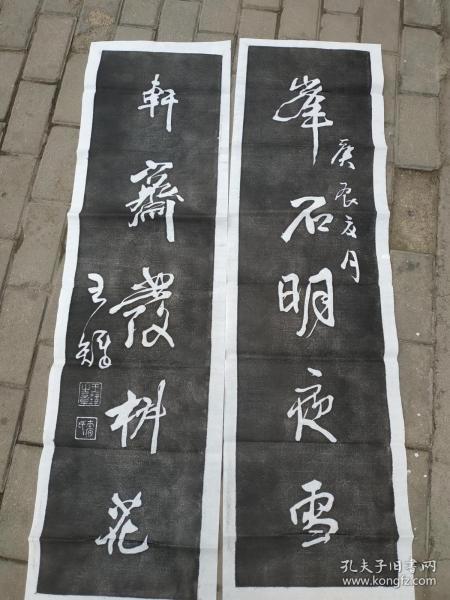 峯石明夜雪
庚辰夏月
軒齋發花
王鐸
孔夫子旧书网
www.kongfz.com